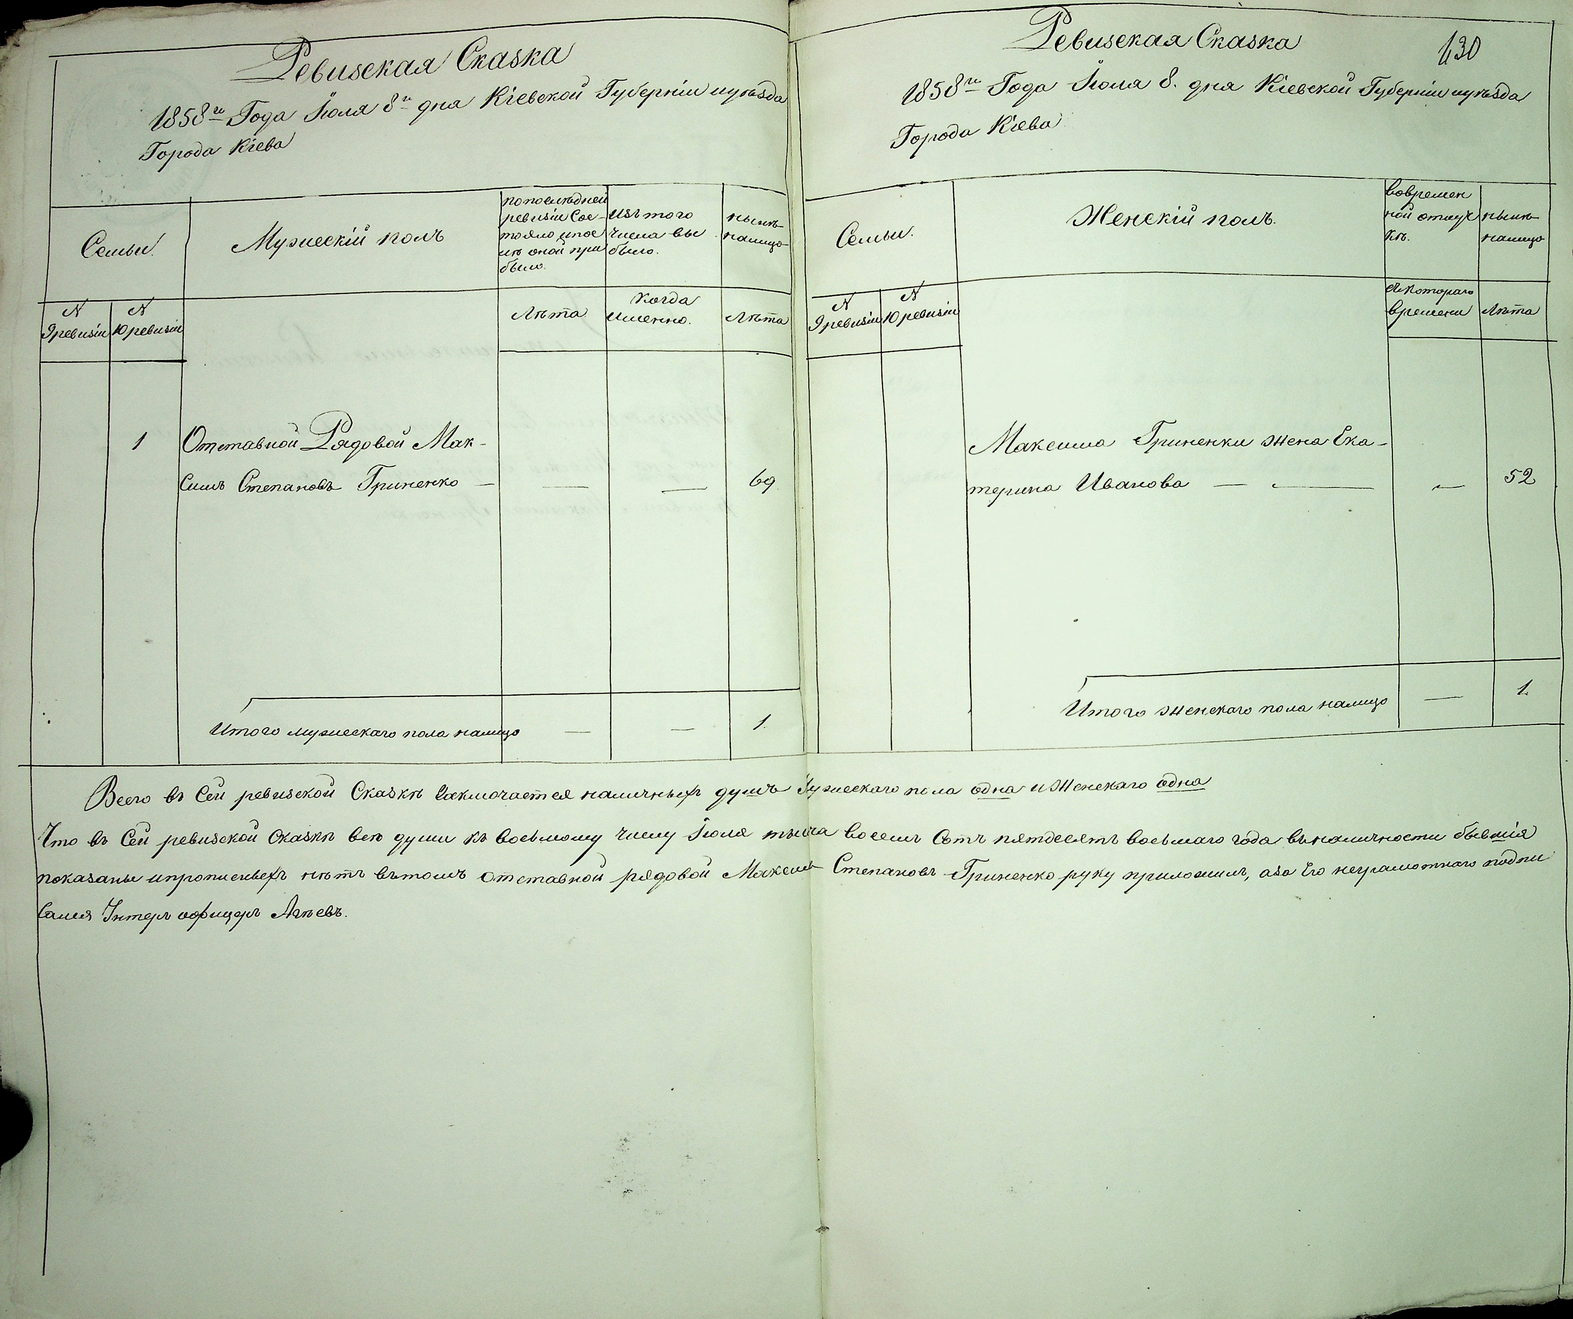 Ревизская Сказка
1858го Года Іюля 8го дня Кіевской Губерніи иуѣзда
Города Кіева
Семьи.
Мужескій полъ
попослѣдней ревизіи Состояло ипослѣ оной прибыло.
изъ того числа выбыло.
нынѣ налицо
N 9 ревизіи
N 10 ревизіи
Лѣта
Когда имянно.
Лѣта
1
Отставной Рядовой Мак-
симъ Степановъ Гриненко — — — 69
Итого мужескаго пола налицо — — 1.
Ревизская Сказка
130
1858го Года Іюля 8. дня Кіевской Губерніи иуѣзда
Города Кіева
Семьи.
Женскій полъ.
вовременной отлучкѣ.
нынѣ налицо
N 9 ревизіи
N 10 ревизіи
съкотораго времени
Лѣта
Максима Гриненки жена Ека-
терина Иванова — — — 52
Итого женскаго пола налицо — 1.
Всего въ Сей ревизской Сказкѣ заключается наличныхъ душъ Мужескаго пола одна и Женскаго одна
Что въ Сей ревизской Сказкѣ всѣ души къ восьмому числу Іюля тысяча восемъ Сотъ пятдесятъ восьмаго года въналичности бывшія
показаны ипрописныхъ нѣтъ вътомъ отставной рядовой Максимъ Степановъ Гриненко руку приложилъ, аза Его неграмотнаго подпи
сался Унтеръ офицеръ Агѣевъ.